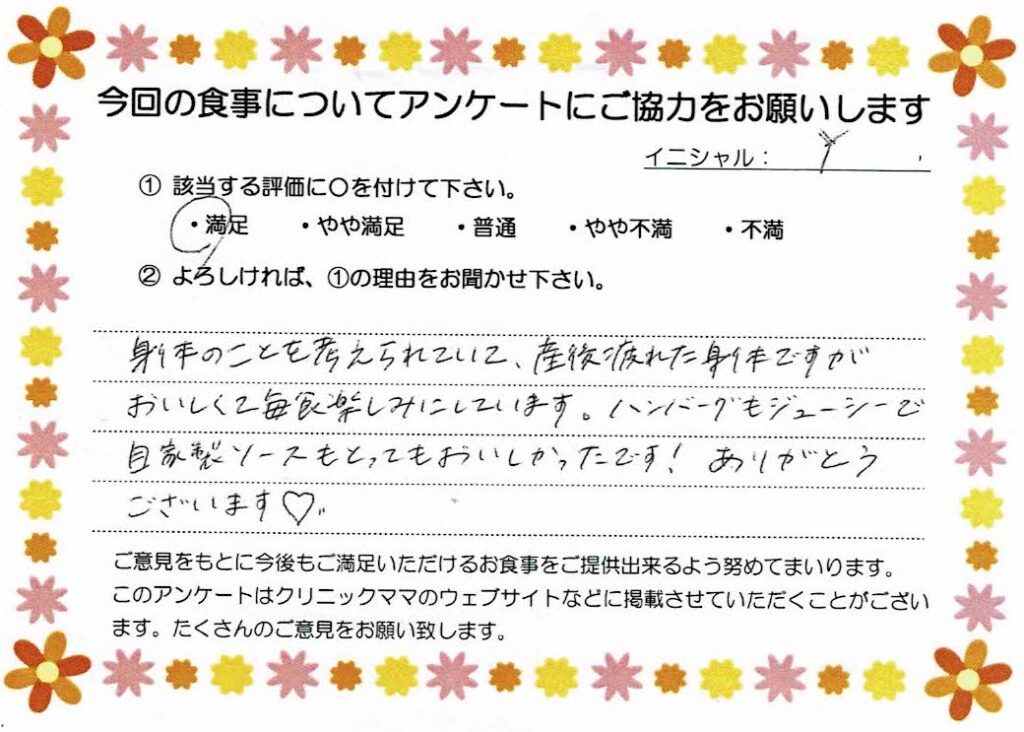 今回の食事についてアンケートにご協力をお願いします
イニシャル： Y
① 該当する評価に〇を付けて下さい。
・満足 ・やや満足 ・普通 ・やや不満 ・不満
② よろしければ、①の理由をお聞かせ下さい。
身体のことを考えられていて、産後疲れた身体ですが
おいしくて毎食楽しみにしています。ハンバーグもジューシーで
自家製ソースもとってもおいしかったです! ありがとう
ございます♡
ご意見をもとに今後もご満足いただけるお食事をご提供出来るよう努めてまいります。
このアンケートはクリニックママのウェブサイトなどに掲載させていただくことがござい
ます。たくさんのご意見をお願い致します。